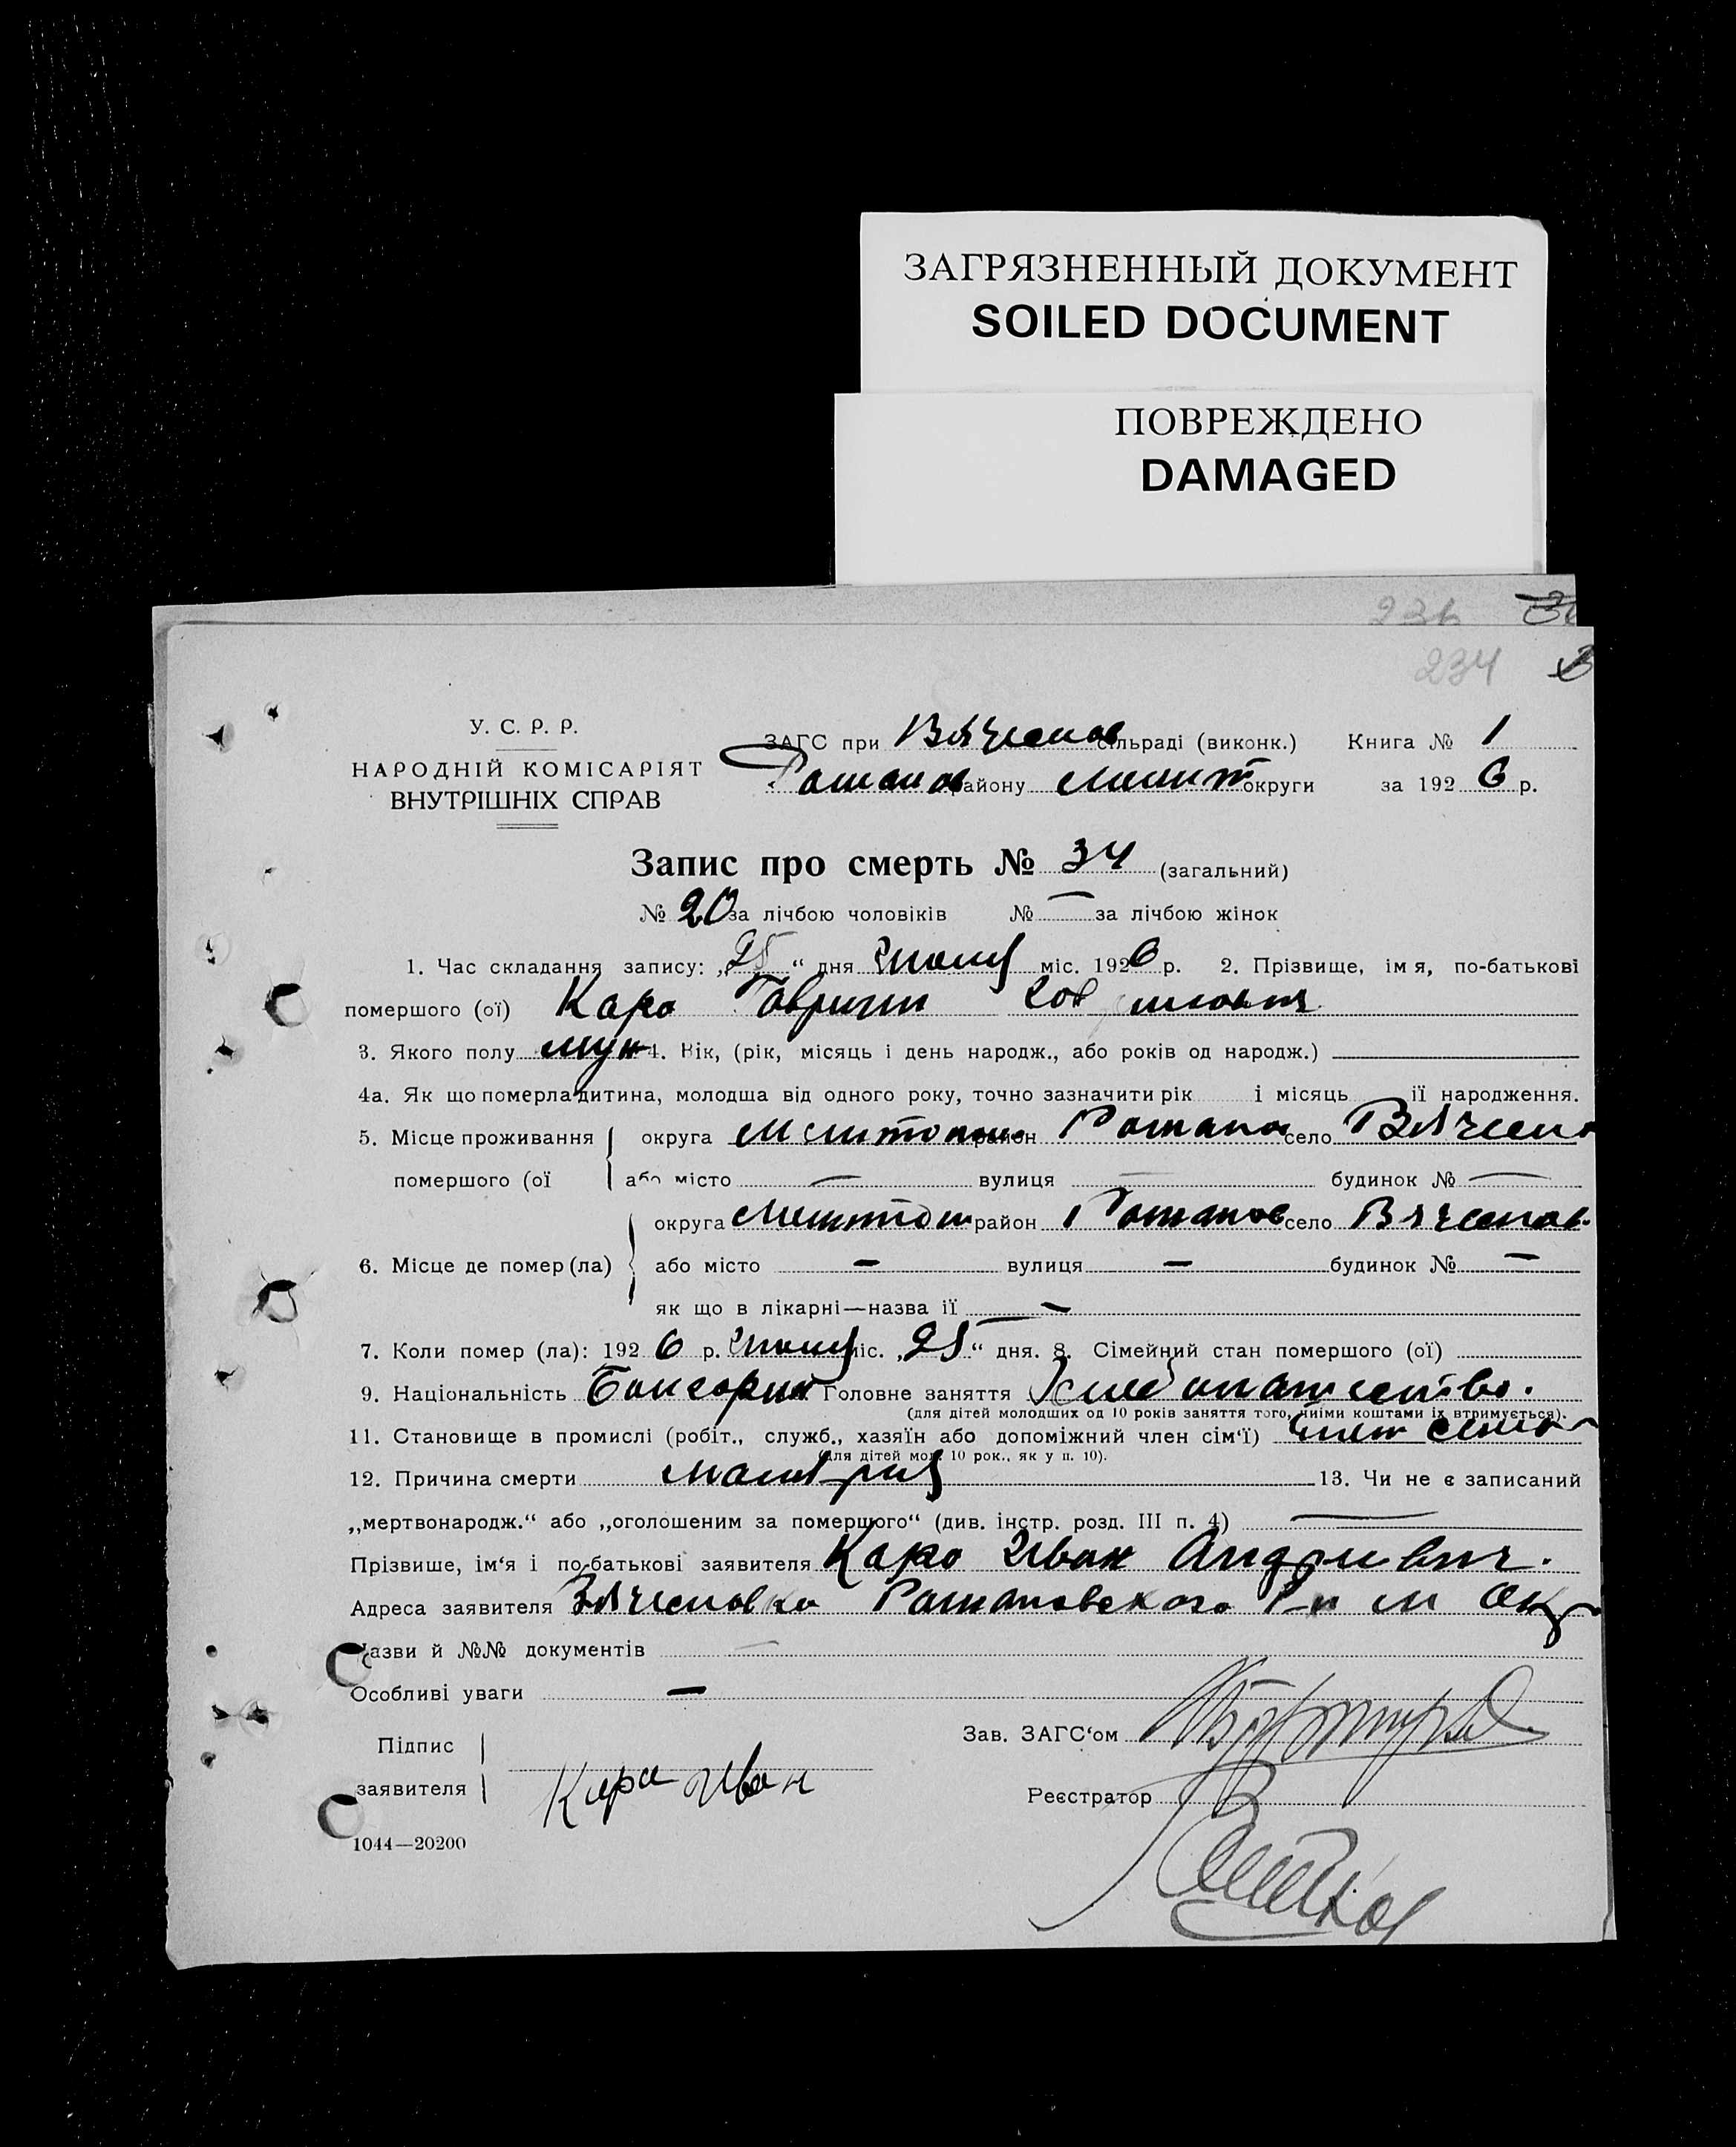 ЗАГРЯЗНЕННЫЙ ДОКУМЕНТ
SOILED DOCUMENT
ПОВРЕЖДЕНО
DAMAGED
234
У. С. Р. Р.
НАРОДНІЙ КОМІСАРІЯТ
ВНУТРІШНІХ СПРАВ
ЗАГС при Вячеслов сільраді (виконк.) Книга № 1
Романов району Мелит округи за 1926 р.
Запис про смерть № 34 (загальний)
№ 20 за лічбою чоловіків № — за лічбою жінок
1. Час складання запису: „25“ дня Июля міс. 1926 р. 2. Прізвище, імя, по-батькові
помершого (ої) Кара Гаврилл
3. Якого полу муж 4. Вік, (рік, місяць і день народж., або років од народж.)
4а. Як що померла дитина, молодша від одного року, точно зазначити рік і місяць ії народження.
5. Місце проживання округа Мелитопол район Романов село Вячесл
помершого (ої або місто — вулиця — будинок № —
округа Мелитоп район Романов село Вячеслов
6. Місце де помер (ла) або місто — вулиця — будинок № —
як що в лікарні—назва ії —
7. Коли помер (ла): 1926 р. Июля міс. „25“ дня. 8. Сімейний стан помершого (ої)
9. Національність Болгарин Головне заняття Хлебопашество.
(для дітей молодших од 10 років заняття того, чиїми коштами їх втримується).
11. Становище в промислі (робіт., служб., хазяїн або допоміжний член сім‘ї) член семьи
(для дітей мол. 10 рок., як у п. 10).
12. Причина смерти Малярия 13. Чи не є записаний
„мертвонародж.“ або „оголошеним за померщого“ (див. інстр. розд. III п. 4) —
Прізвише, ім‘я і по-батькові заявителя Кара Иван Андриевич.
Адреса заявителя Вячеславка Романовского Р-н М Окр
Назви й №№ документів —
Особливі уваги —
Зав. ЗАГС‘ом
Підпис
заявителя Кара Иван
Реєстратор
1044—20200